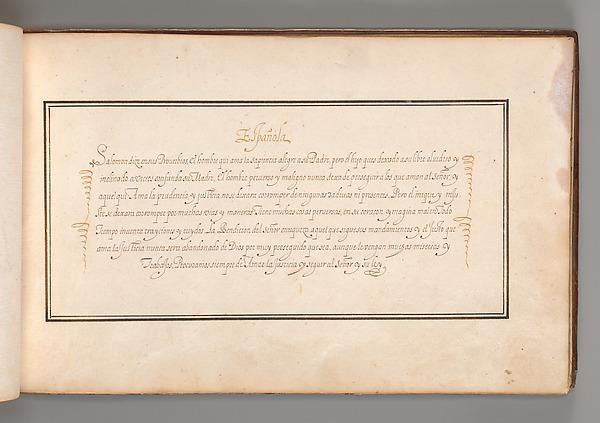 Española
Salomon dize en sus Proverbios, El hombre qui ama la sapiencia alegra a su Padre, pero el hijo ques dexado a su libre aluidrio y
inclinado a vices confunda su Madre. El hombre perverso y maligno nunca dexa de perseguir a los que aman al Señor, y
aquel qui Ama la prudencia y justicia no se dexara corromper de ningunas dadivas ni presentes. Pero el iniquo y injus
se dexara corromper por muchas vias y maneras Tiene muchas cosas perversas en su coraçon, y magina mal en todo
Tiempo inventa trayciones y The Bendicion del Señor enriqueze aquel que sigue sus mandamientos y el justo que
ama la justicia nunca sera abandonado de Dios por muy perseguido que sea, aunque le vengan muchas miserias y
Trabajos, Procuramos siempre de Amar la justicia y seguir al Señor y su ley